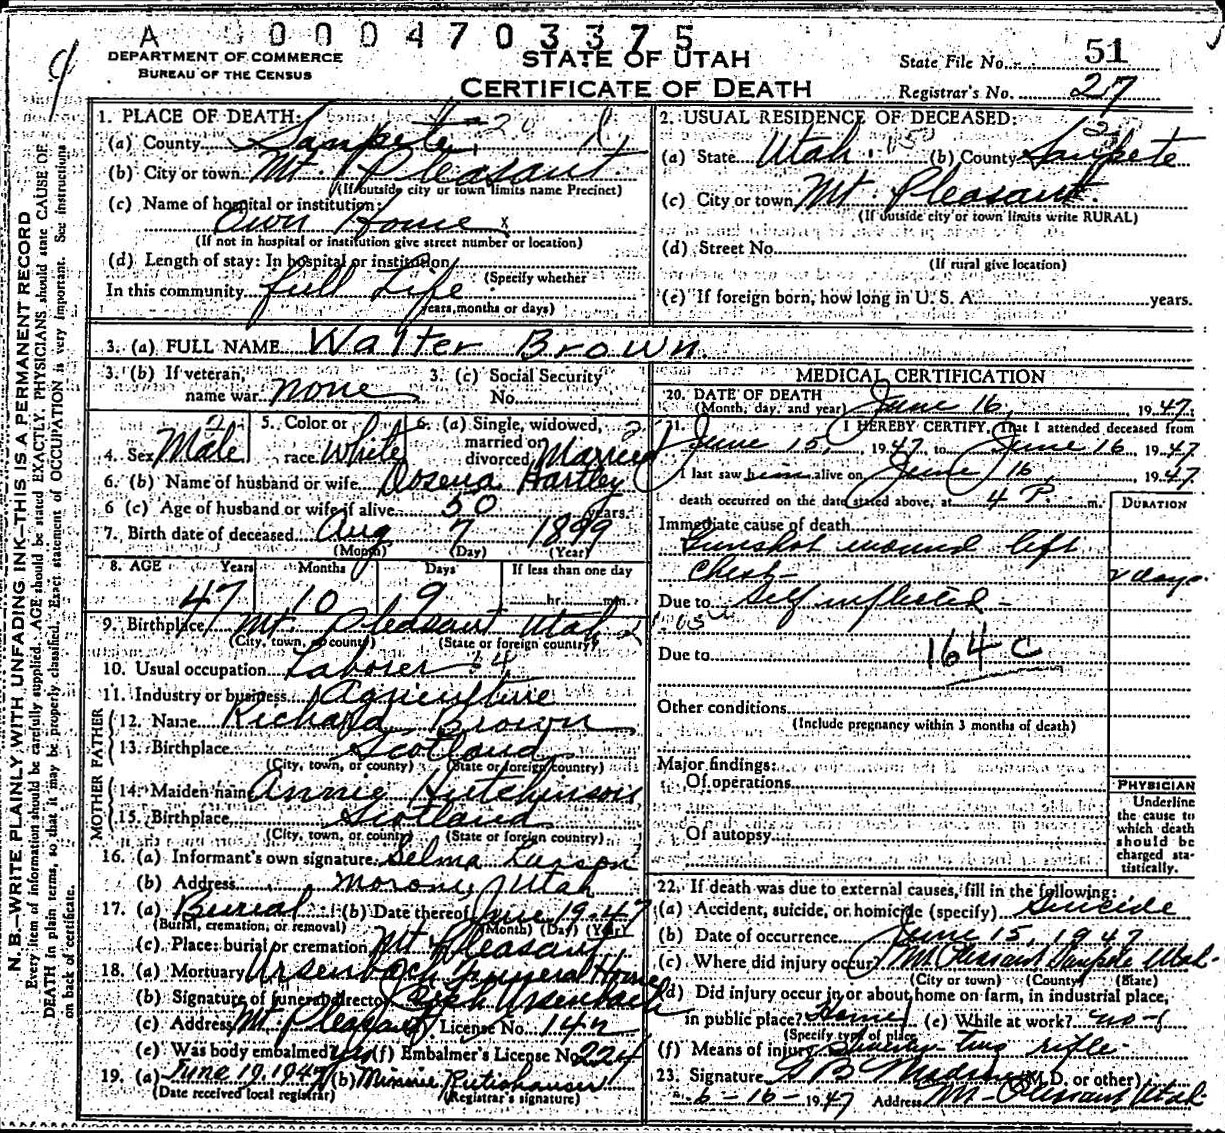 A 0004703375
DEPARTMENT OF COMMERCE
BUREAU OF THE CENSUS
STATE OF UTAH
CERTIFICATE OF DEATH
State File No. 51
Registrar's No. 27
N. B.—WRITE PLAINLY WITH UNFADING INK—THIS IS A PERMANENT RECORD
Every item of information should be carefully supplied. AGE should be stated EXACTLY. PHYSICIANS should state CAUSE OF
DEATH in plain terms, so that it may be properly classified. Exact statement of OCCUPATION is very important. See instructions
on back of certificate.
1. PLACE OF DEATH:
(a) County Sanpete
(b) City or town Mt. Pleasant
(If outside city or town limits name Precinct)
(c) Name of hospital or institution:
Own Home x
(If not in hospital or institution give street number or location)
(d) Length of stay: In hospital or institution
(Specify whether
In this community full Life
years, months or days)
2. USUAL RESIDENCE OF DECEASED:
(a) State Utah (b) County Sanpete
(c) City or town Mt. Pleasant
(If outside city or town limits write RURAL)
(d) Street No.
(If rural give location)
(e) If foreign born, how long in U. S. A. years.
3. (a) FULL NAME Walter Brown
3. (b) If veteran, name war none
3. (c) Social Security No.
4. Sex Male
5. Color or race White
6. (a) Single, widowed, married or divorced Married
6. (b) Name of husband or wife Rosena Hartley
6 (c) Age of husband or wife if alive 50 years.
7. Birth date of deceased Aug 7 1899
(Month) (Day) (Year)
8. AGE Years Months Days If less than one day
47 10 9 hr. min.
9. Birthplace Mt. Pleasant Utah
(City, town, or county) (State or foreign country)
10. Usual occupation Laborer
11. Industry or business Agriculture
FATHER
12. Name Richard Brown
13. Birthplace Scotland
(City, town, or county) (State or foreign country)
MOTHER
14. Maiden name Annie Hutchinson
15. Birthplace Scotland
(City, town, or county) (State or foreign country)
16. (a) Informant's own signature Selma Larson
(b) Address Moroni, Utah
17. (a) Burial (b) Date thereof June 19-47
(Burial, cremation, or removal) (Month) (Day) (Year)
(c) Place: burial or cremation Mt Pleasant
18. (a) Mortuary Ursenbach Funeral Home
(b) Signature of funeral director Ursenbach
(c) Address Mt Pleasant License No. 142
(e) Was body embalmed? yes (f) Embalmer's License No. 224
19. (a) June 19 1947 (b) Minnie Rutishauser
(Date received local registrar) (Registrar's signature)
MEDICAL CERTIFICATION
20. DATE OF DEATH
(Month, day, and year) June 16, 1947
21. I HEREBY CERTIFY, That I attended deceased from
June 15, 1947 to June 16 1947
I last saw him alive on June 16, 1947
death occurred on the date stated above, at 4 P. m.
DURATION
Immediate cause of death
Gunshot wound left
Chest- 2 days
Due to Self inflicted -
Due to 164 c
Other conditions
(Include pregnancy within 3 months of death)
Major findings:
Of operations
Of autopsy
PHYSICIAN
Underline
the cause to
which death
should be
charged sta-
tistically.
22. If death was due to external causes, fill in the following:
(a) Accident, suicide, or homicide (specify) Suicide
(b) Date of occurrence June 15, 1947
(c) Where did injury occur? Mt Pleasant Sanpete Utah
(City or town) (County) (State)
(d) Did injury occur in or about home on farm, in industrial place,
in public place? Home (e) While at work? no
(Specify type of place)
(f) Means of injury rifle
23. Signature (M.D. or other)
6-16-1947 Address Mt-Pleasant Utah